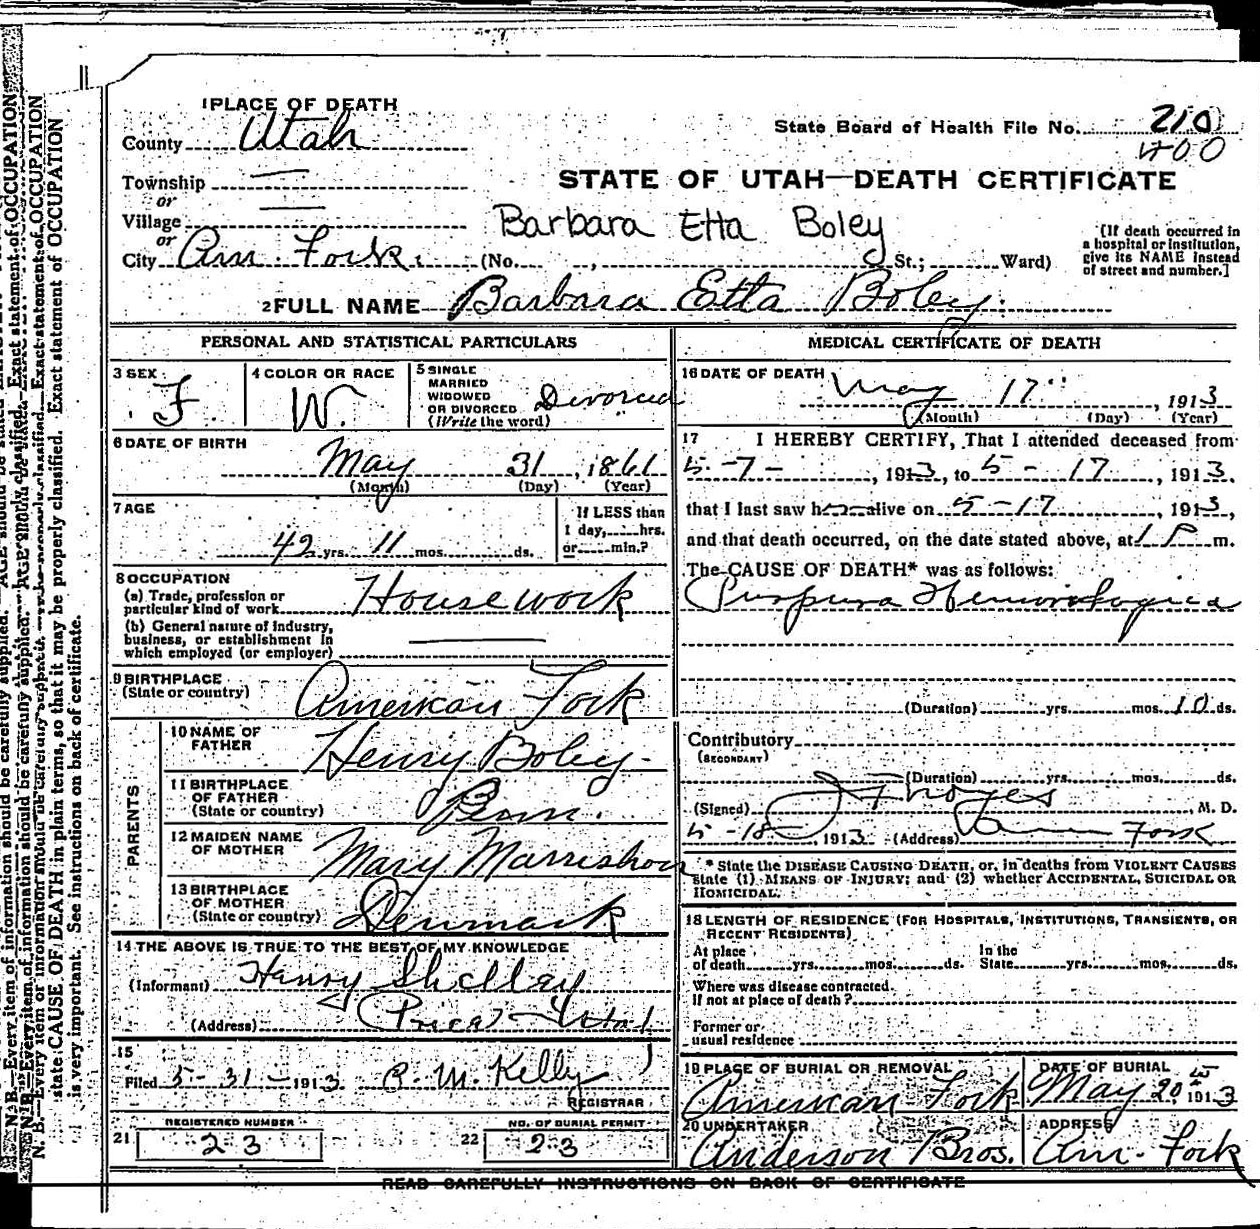 1 PLACE OF DEATH
County Utah
State Board of Health File No. 210
400
Township —
or
Village —
or
City Am. Fork. (No. , St.; Ward)
STATE OF UTAH—DEATH CERTIFICATE
Barbara Etta Boley
[If death occurred in
a hospital or institution,
give its NAME instead
of street and number.]
2 FULL NAME Barbara Etta Boley.
PERSONAL AND STATISTICAL PARTICULARS
3 SEX F
4 COLOR OR RACE W.
5 SINGLE
MARRIED
WIDOWED
OR DIVORCED
(Write the word) Divorced
6 DATE OF BIRTH
May 31, 1861
(Month) (Day) (Year)
7 AGE
42 yrs. 11 mos. ds.
If LESS than
1 day, hrs.
or min.?
8 OCCUPATION
(a) Trade, profession or
particular kind of work Housework
(b) General nature of industry,
business, or establishment in
which employed (or employer) —
9 BIRTHPLACE
(State or country) American Fork
PARENTS
10 NAME OF
FATHER Henry Boley
11 BIRTHPLACE
OF FATHER
(State or country) Penn.
12 MAIDEN NAME
OF MOTHER Mary
13 BIRTHPLACE
OF MOTHER
(State or country) Denmark
14 THE ABOVE IS TRUE TO THE BEST OF MY KNOWLEDGE
(Informant) Henry Shelley
(Address) Price, Utah
15
Filed 5-31-1913 R. M. Kelly
REGISTRAR
21 REGISTERED NUMBER
23
22 NO. OF BURIAL PERMIT
23
MEDICAL CERTIFICATE OF DEATH
16 DATE OF DEATH
May 17, 1913
(Month) (Day) (Year)
17 I HEREBY CERTIFY, That I attended deceased from
5-7-, 1913, to 5-17, 1913.
that I last saw h alive on 5-17, 1913,
and that death occurred, on the date stated above, at 1 P m.
The CAUSE OF DEATH* was as follows:
Purpura Hemorrhagica
(Duration) yrs. mos. 10 ds.
Contributory
(SECONDARY)
(Duration) yrs. mos. ds.
(Signed) J F Noyes, M. D.
5-18-, 1913 (Address) Am Fork
* State the DISEASE CAUSING DEATH, or, in deaths from VIOLENT CAUSES
state (1) MEANS OF INJURY; and (2) whether ACCIDENTAL, SUICIDAL OR
HOMICIDAL.
18 LENGTH OF RESIDENCE (FOR HOSPITALS, INSTITUTIONS, TRANSIENTS, OR
RECENT RESIDENTS)
At place In the
of death yrs. mos. ds. State yrs. mos. ds.
Where was disease contracted
If not at place of death?
Former or
usual residence
19 PLACE OF BURIAL OR REMOVAL
American Fork
DATE OF BURIAL
May 20, 1913
20 UNDERTAKER
Anderson Bros.
ADDRESS
Am. Fork
READ CAREFULLY INSTRUCTIONS ON BACK OF CERTIFICATE
N. B.—Every item of information should be carefully supplied. AGE should be stated EXACTLY.
state CAUSE OF DEATH in plain terms, so that it may be properly classified. Exact statement of OCCUPATION
is very important. See instructions on back of certificate.